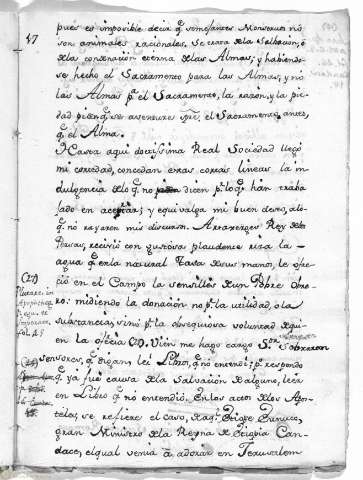 47
pues es imposible decir q.e semejantes Monstruos no
son animales racionales, se trata dela salvacion, ó
dela condenacion eterna delas Almas; y habiendo-
se hecho el Sacramento para las Almas, y nó
las Almas p.a el Sacramento, la razon, y la pie-
dad piden q.e se aventure el Sacramento, antes,
q.e el Alma.
Hasta aqui doctissima Real Sociedad llegó
mi cortedad, concedan estas cortas lineas la in-
dulgencia delo q.e no dicen p.r lo q.e han traba
jado en acertar; y equivalga mi buen deseo, alo-
q.e no rayaren mis discursos. Artaxerges Rey delos
Persas, recivió con gustosa plaudente risa la-
agua q.e en la natural taza desus manos, le ofre-
ció en el Campo la sensilles deun Pobre Obre-
ro: midiendo la donación no p.r la utilidad, ó la
substancia, sino p.r la obsequiosa voluntad dequi-
en la ofrecia (27). Vien me hago cargo
Señores, q.e digan, lei Libro, q.e no entendí: p.o respondo
q.e ya fué causa dela Salvación de alguno, leer
en Libro q.e no entendió. En los actos delos Apos-
toles, se refiere el caso, de aq.l Etiope Eunuco,
gran Ministro dela Reyna de Etiopia Can-
dace, el qual venia á adorar en Jerusalem
(27)